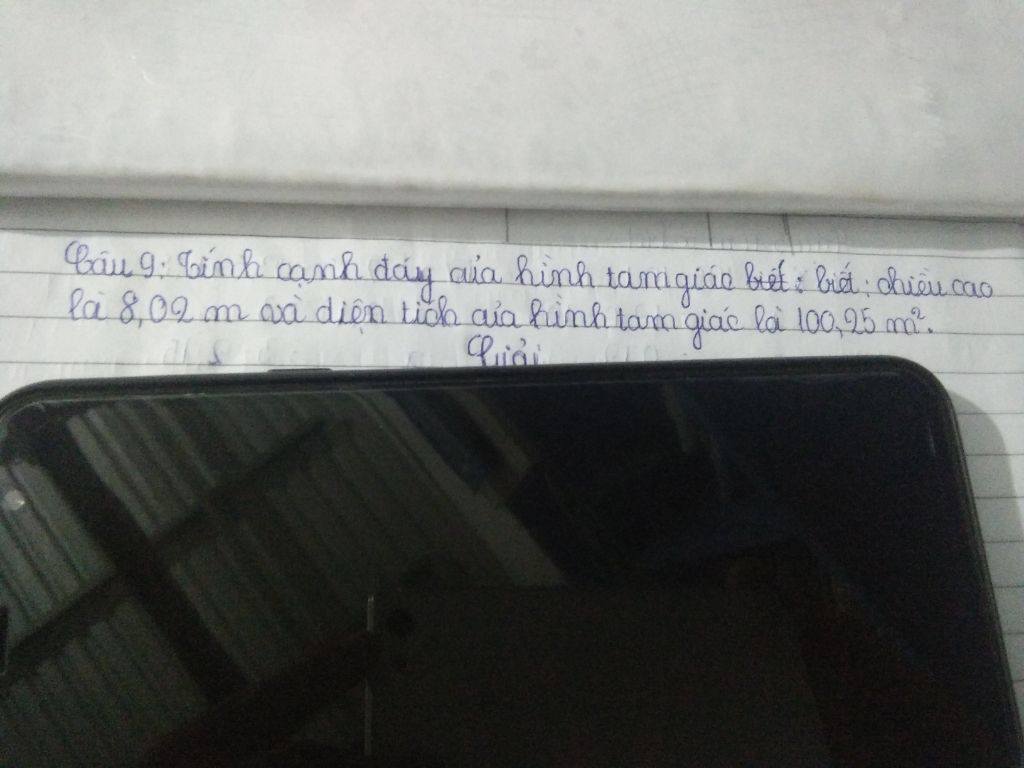 Câu 9: Tính cạnh đáy của hình tam giác biết: biết: chiều cao
là 8,02 m và diện tích của hình tam giác là 100,25 m².
Giải